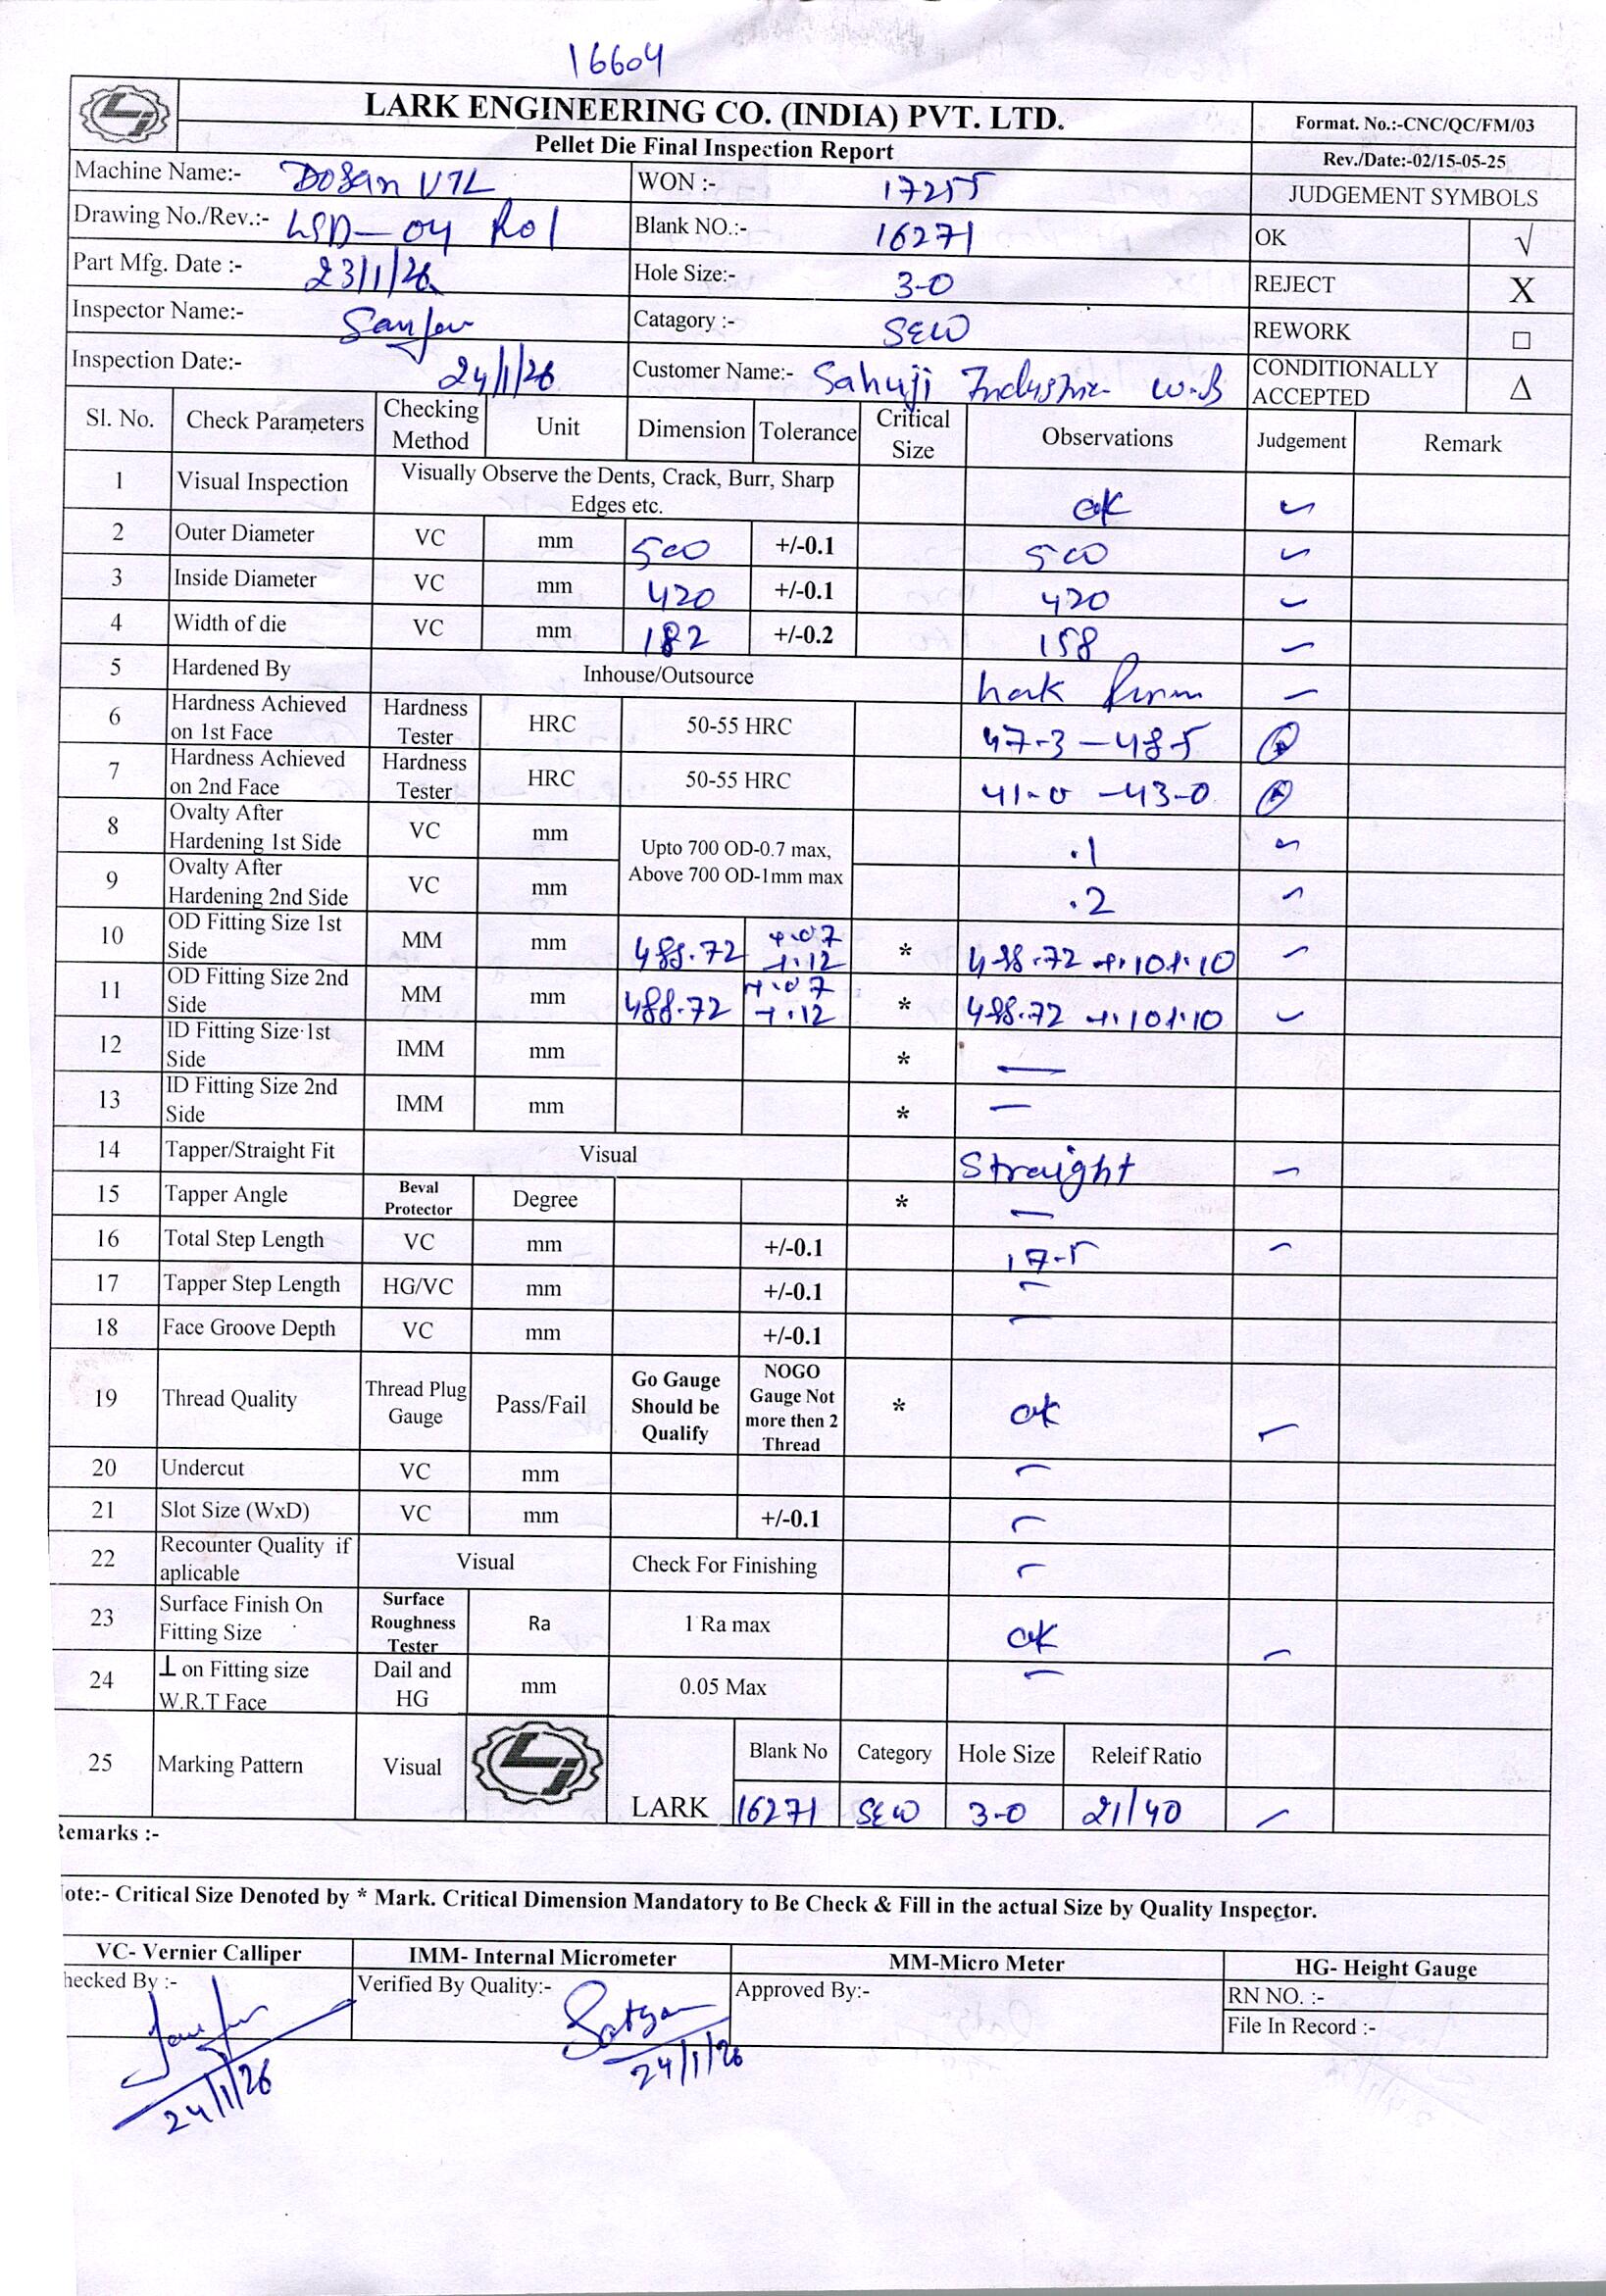 16604
LARK ENGINEERING CO. (INDIA) PVT. LTD.
Pellet Die Final Inspection Report
Format. No.:-CNC/QC/FM/03
Rev./Date:-02/15-05-25
Machine Name:- Dosan VTL WON :- 17255 JUDGEMENT SYMBOLS
Drawing No./Rev.:- LSD-04 R01 Blank NO.:- 16271 OK √
Part Mfg. Date :- 23/1/26 Hole Size:- 3-0 REJECT X
Inspector Name:- Catagory :- SEW REWORK □
Inspection Date:- 24/1/26 Customer Name:- Sahuji W.B CONDITIONALLY ACCEPTED Δ
Sl. No. Check Parameters Checking Method Unit Dimension Tolerance Critical Size Observations Judgement Remark
1 Visual Inspection Visually Observe the Dents, Crack, Burr, Sharp Edges etc. ok
2 Outer Diameter VC mm 500 +/-0.1 500
3 Inside Diameter VC mm 420 +/-0.1 420
4 Width of die VC mm 182 +/-0.2 158
5 Hardened By Inhouse/Outsource
6 Hardness Achieved on 1st Face Hardness Tester HRC 50-55 HRC 47-3 - 48-5
7 Hardness Achieved on 2nd Face Hardness Tester HRC 50-55 HRC 41-0 - 43-0
8 Ovalty After Hardening 1st Side VC mm Upto 700 OD-0.7 max, Above 700 OD-1mm max .1
9 Ovalty After Hardening 2nd Side VC mm .2
10 OD Fitting Size 1st Side MM mm 488.72 +.07 +.12 * 488.72 +.10 +.10
11 OD Fitting Size 2nd Side MM mm 488.72 +.07 +.12 * 488.72 +.10 +.10
12 ID Fitting Size 1st Side IMM mm * —
13 ID Fitting Size 2nd Side IMM mm * —
14 Tapper/Straight Fit Visual Straight
15 Tapper Angle Beval Protector Degree * —
16 Total Step Length VC mm +/-0.1 17-5
17 Tapper Step Length HG/VC mm +/-0.1 —
18 Face Groove Depth VC mm +/-0.1 —
19 Thread Quality Thread Plug Gauge Pass/Fail Go Gauge Should be Qualify NOGO Gauge Not more then 2 Thread * ok
20 Undercut VC mm —
21 Slot Size (WxD) VC mm +/-0.1 —
22 Recounter Quality if aplicable Visual Check For Finishing —
23 Surface Finish On Fitting Size Surface Roughness Tester Ra 1 Ra max ok
24 ⊥ on Fitting size W.R.T Face Dail and HG mm 0.05 Max —
25 Marking Pattern Visual LARK Blank No Category Hole Size Releif Ratio
16271 SEW 3-0 21/40
Remarks :-
ote:- Critical Size Denoted by * Mark. Critical Dimension Mandatory to Be Check & Fill in the actual Size by Quality Inspector.
VC- Vernier Calliper IMM- Internal Micrometer MM-Micro Meter HG- Height Gauge
hecked By :- Verified By Quality:- Satyam Approved By:- RN NO. :-
File In Record :-
24/1/26 24/1/26